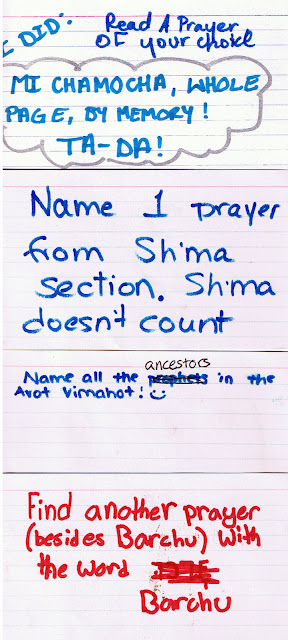 I DID:
Read A Prayer
OF your choice
MI CHAMOCHA, WHOLE
PAGE, BY MEMORY!
TA-DA!
Name 1 prayer
from Sh'ma
section. Sh'ma
doesn't count
ancestors
Name all the prophets in the
Avot V'imahot!
Find another prayer
(besides Barchu) with
the word
Barchu